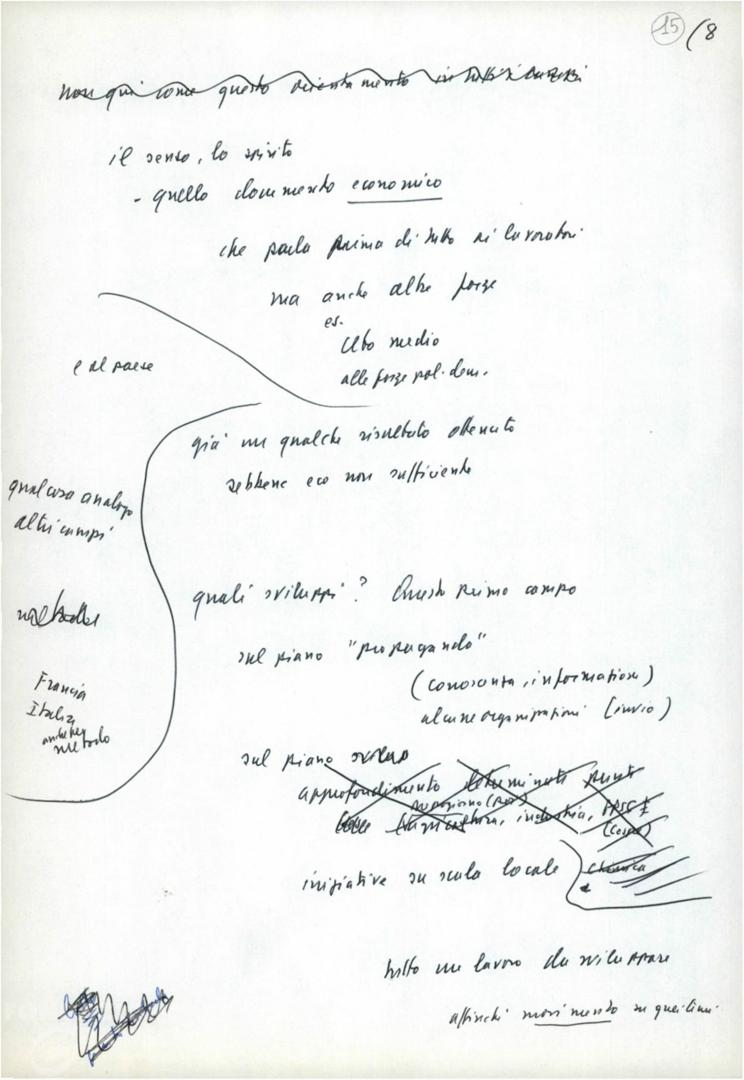 15 / 8
non qui come questo orientamento in tutti i
il senso, lo spirito
- quello documento economico
che parla prima di tutto ai lavoratori
ma anche altre forze
es.
ceto medio
alle forze pol. dem.
e al paese
già un qualche risultato ottenuto
sebbene eco non sufficiente
qualcosa analogo
altri campi
quali sviluppi? Questo primo campo
sul piano "propagando"
(conoscenza, informazione)
alcune organizzazioni (invio)
Francia
Italia
anche per
metodo
sul piano
approfondimento determinati punti
agricoltura, industria,
iniziative su scala locale
chimica
tutto un lavoro da sviluppare
affinché movimento su questi